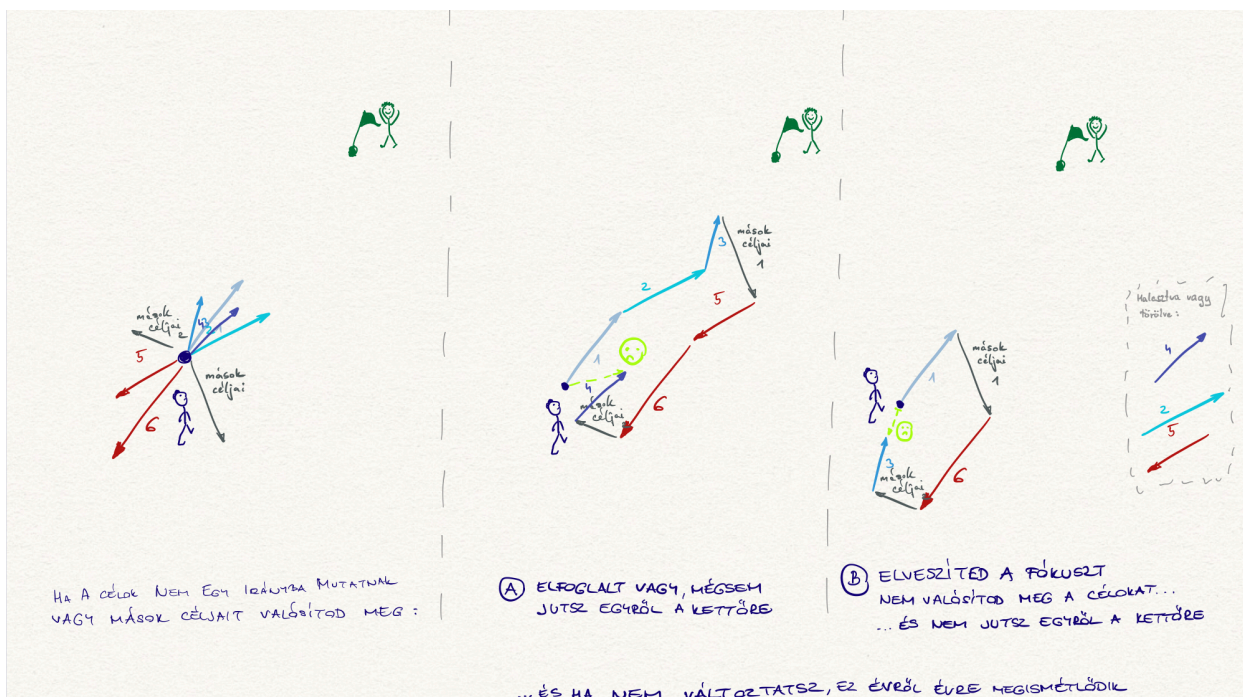 mások
céljai
2
4
3
2
1
5
6
mások
céljai
HA A CÉLOK NEM EGY IRÁNYBA MUTATNAK
VAGY MÁSOK CÉLJAIT VALÓSÍTOD MEG:
3
mások
céljai
1
2
5
1
4
mások
céljai
6
A ELFOGLALT VAGY, MÉGSEM
JUTSZ EGYRŐL A KETTŐRE
1
mások
céljai
1
3
mások
céljai
2
6
Halasztva vagy
törölve:
4
2
5
B ELVESZÍTED A FÓKUSZT
NEM VALÓSÍTOD MEG A CÉLOKAT...
...ÉS NEM JUTSZ EGYRŐL A KETTŐRE
...ÉS HA NEM VÁLTOZTATSZ, EZ ÉVRŐL ÉVRE MEGISMÉTLŐDIK